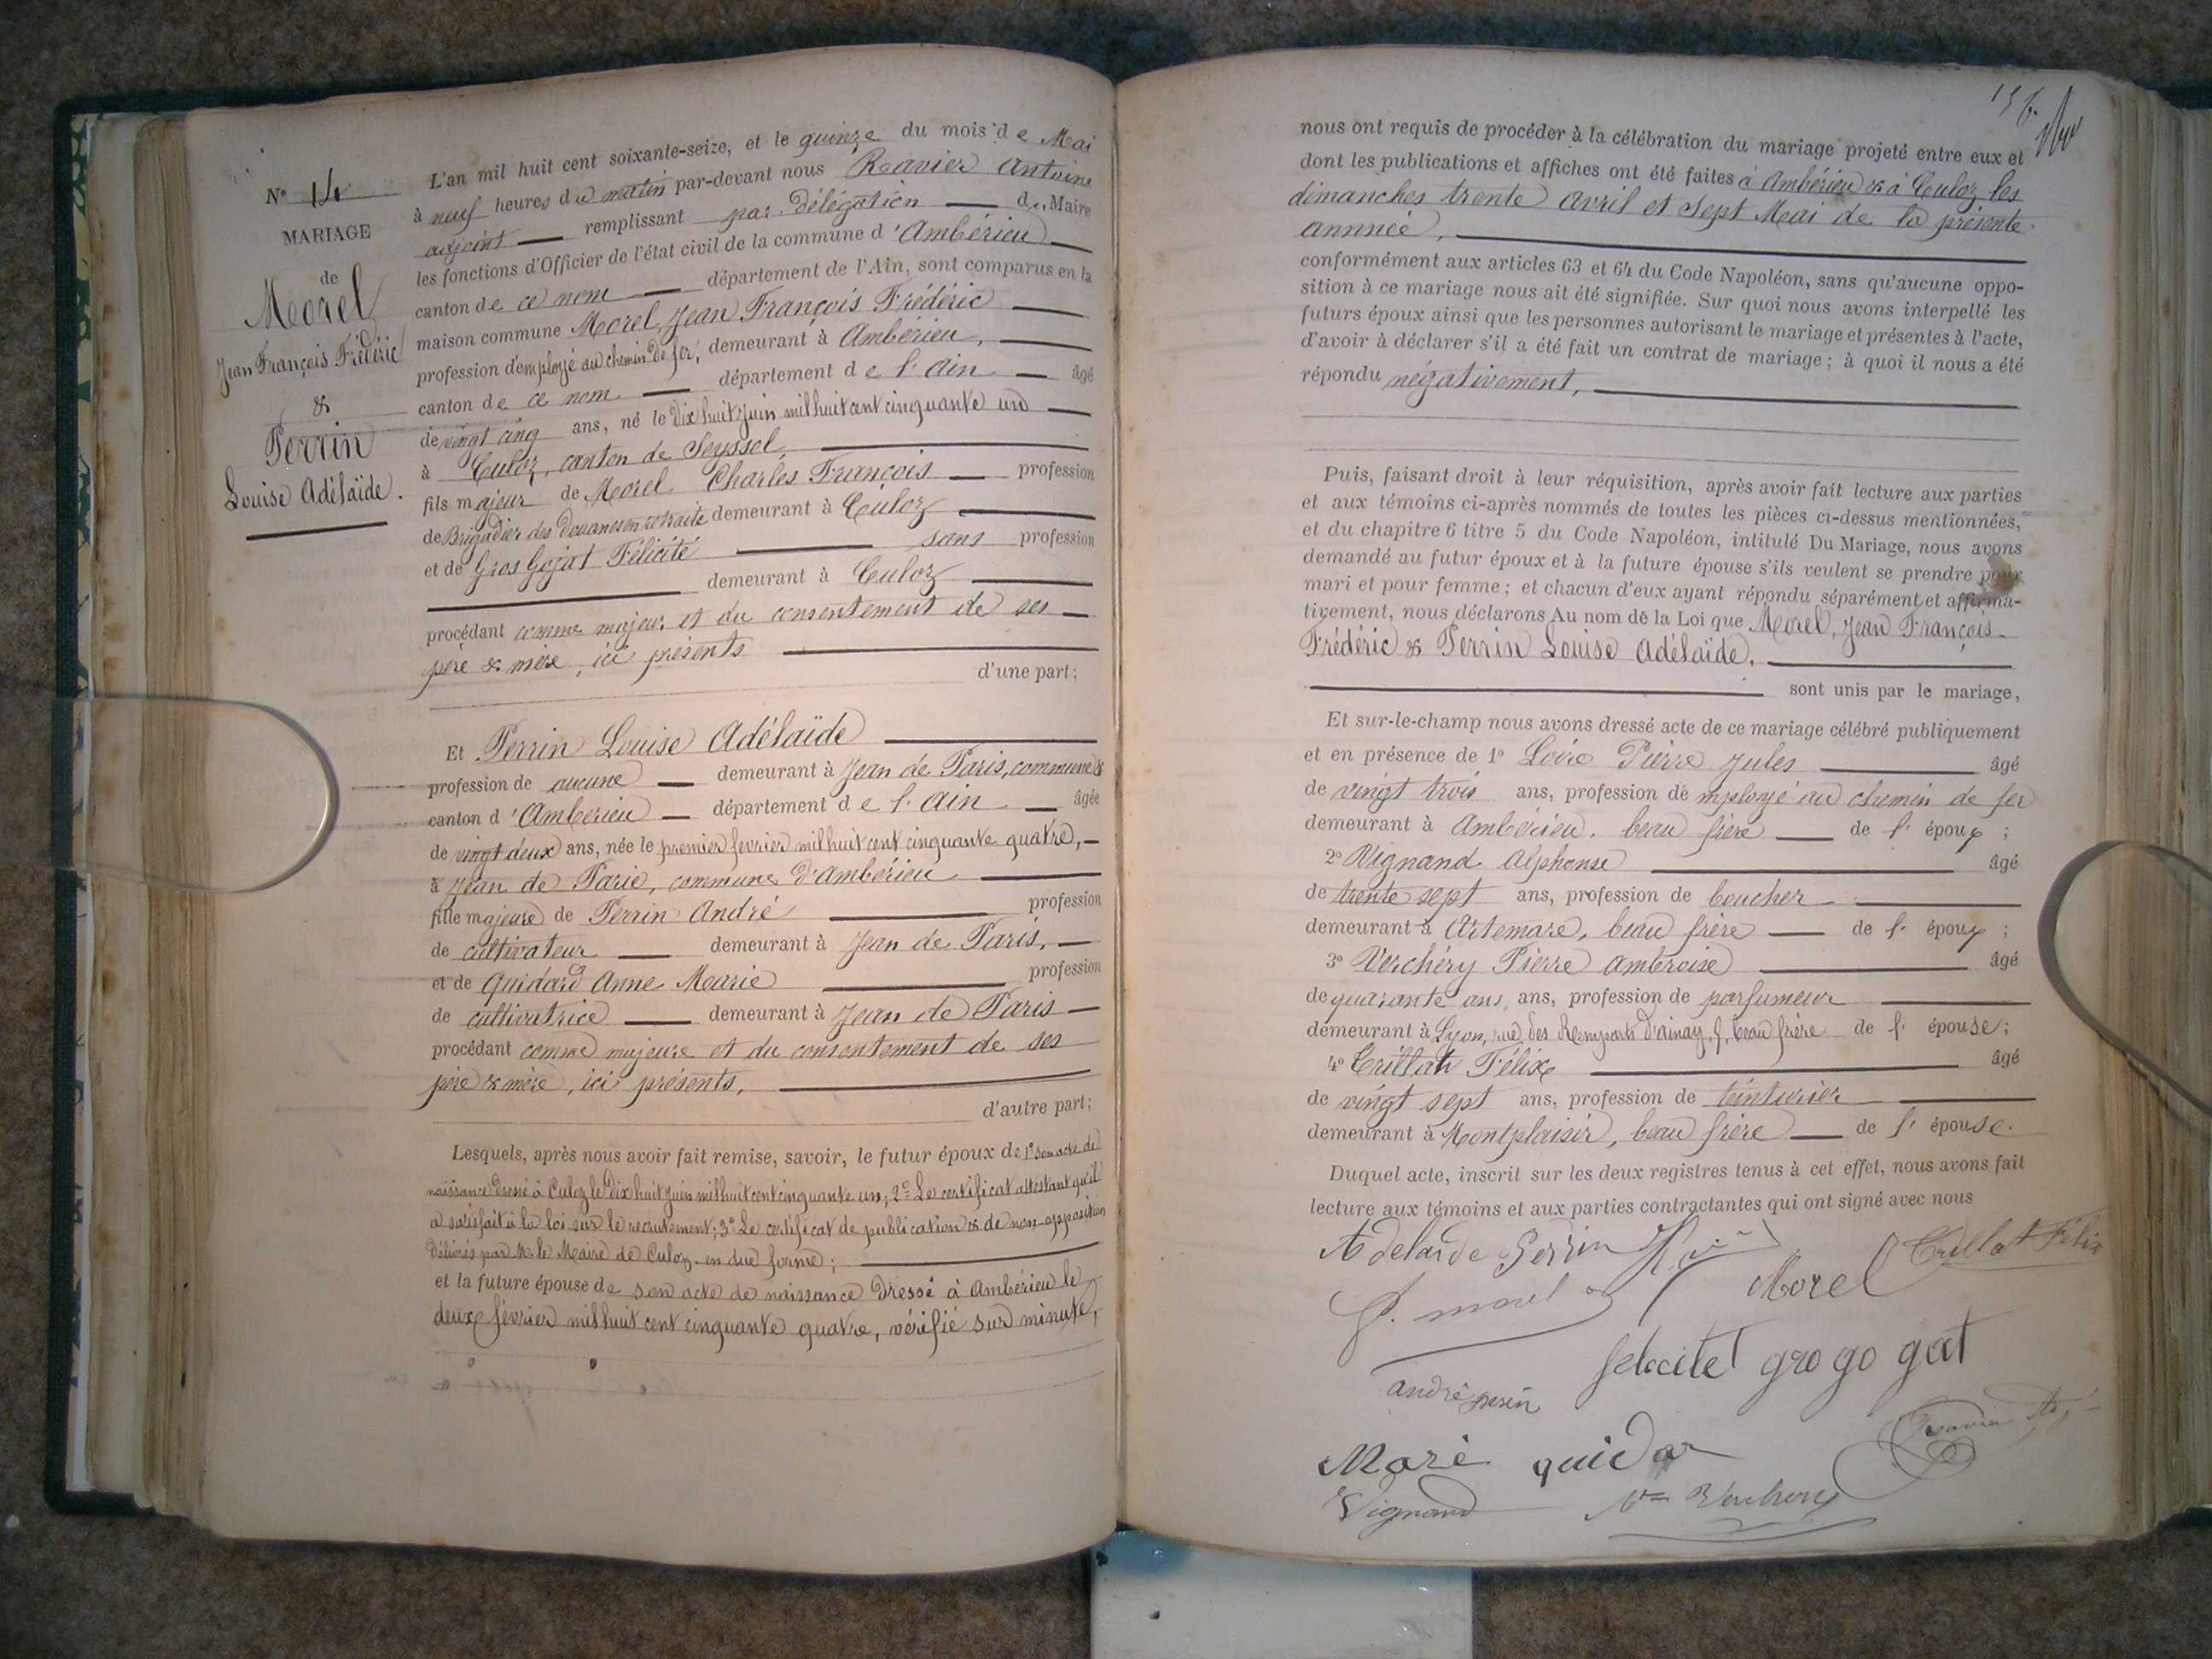 N° 14
MARIAGE
de
Morel
Jean François Frédéric
&
Perrin
Louise Adélaïde.
L'an mil huit cent soixante-seize, et le quinze du mois de Mai
à neuf heures du matin par-devant nous Ravier Antoine
adjoint remplissant par délégation du Maire
les fonctions d'Officier de l'état civil de la commune d'Ambérieu
canton de ce nom département de l'Ain, sont comparus en la
maison commune Morel, Jean François Frédéric
profession d'employé au chemin de fer, demeurant à Ambérieu,
canton de ce nom département de l'Ain âgé
de vingt cinq ans, né le dix huit Juin mil huit cent cinquante un
à Culoz, canton de Seyssel,
fils majeur de Morel Charles François profession
de Brigadier des Douanes en retraite demeurant à Culoz
et de Gros Gojat Félicité sans profession
demeurant à Culoz
procédant comme majeur et du consentement de ses
père & mère, ici présents
d'une part;
Et Perrin Louise Adélaïde
profession de aucune demeurant à Jean de Paris, commune &
canton d'Ambérieu département de l'Ain âgée
de vingt deux ans, née le premier février mil huit cent cinquante quatre,
à Jean de Paris, commune d'Ambérieu
fille majeure de Perrin André profession
de cultivateur demeurant à Jean de Paris,
et de Quidard Anne Marie profession
de cultivatrice demeurant à Jean de Paris
procédant comme majeure et du consentement de ses
père & mère, ici présents,
d'autre part;
Lesquels, après nous avoir fait remise, savoir, le futur époux de 1° son acte de
naissance dressé à Culoz le dix huit Juin mil huit cent cinquante un; 2° Le certificat attestant qu'il
a satisfait à la loi sur le recrutement; 3° Le certificat de publication & de non-opposition
délivrés par M. le Maire de Culoz en due forme;
et la future épouse de son acte de naissance dressé à Ambérieu le
deux février mil huit cent cinquante quatre, vérifié sur minute,
nous ont requis de procéder à la célébration du mariage projeté entre eux et
dont les publications et affiches ont été faites à Ambérieu & à Culoz les
dimanches trente avril et Sept Mai de la présente
année,
conformément aux articles 63 et 64 du Code Napoléon, sans qu'aucune oppo-
sition à ce mariage nous ait été signifiée. Sur quoi nous avons interpellé les
futurs époux ainsi que les personnes autorisant le mariage et présentes à l'acte,
d'avoir à déclarer s'il a été fait un contrat de mariage; à quoi il nous a été
répondu négativement,
Puis, faisant droit à leur réquisition, après avoir fait lecture aux parties
et aux témoins ci-après nommés de toutes les pièces ci-dessus mentionnées,
et du chapitre 6 titre 5 du Code Napoléon, intitulé Du Mariage, nous avons
demandé au futur époux et à la future épouse s'ils veulent se prendre pour
mari et pour femme; et chacun d'eux ayant répondu séparément et affirma-
tivement, nous déclarons Au nom de la Loi que Morel, Jean François
Frédéric & Perrin Louise Adélaïde,
sont unis par le mariage,
Et sur-le-champ nous avons dressé acte de ce mariage célébré publiquement
et en présence de 1° Loire Pierre Jules âgé
de vingt trois ans, profession d'employé au chemin de fer
demeurant à Ambérieu, beau frère de l'époux;
2° Vignand Alphonse âgé
de trente sept ans, profession de boucher
demeurant à Artemare, beau frère de l'époux;
3° Verchéry Pierre Ambroise âgé
de quarante ans, ans, profession de parfumeur
demeurant à Lyon, rue des Remparts d'ainay, beau frère de l'épouse;
4° Crillat Félix âgé
de vingt sept ans, profession de teinturier
demeurant à Montplaisir, beau frère de l'épouse.
Duquel acte, inscrit sur les deux registres tenus à cet effet, nous avons fait
lecture aux témoins et aux parties contractantes qui ont signé avec nous
Adelaide Perrin
Crillat Félix
Morel
morel
felicitet gro go gat
andré perin
Ravier
Marie quidar
Vignand
Verchery